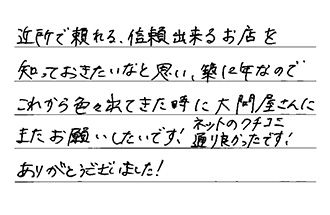 近所で頼れる、信頼出来るお店を
知っておきたいなと思い、築12年なので
これから色々出てきた時に大問屋さんに
またお願いしたいです！ネットのクチコミ
通り良かったです！
ありがとうございました！